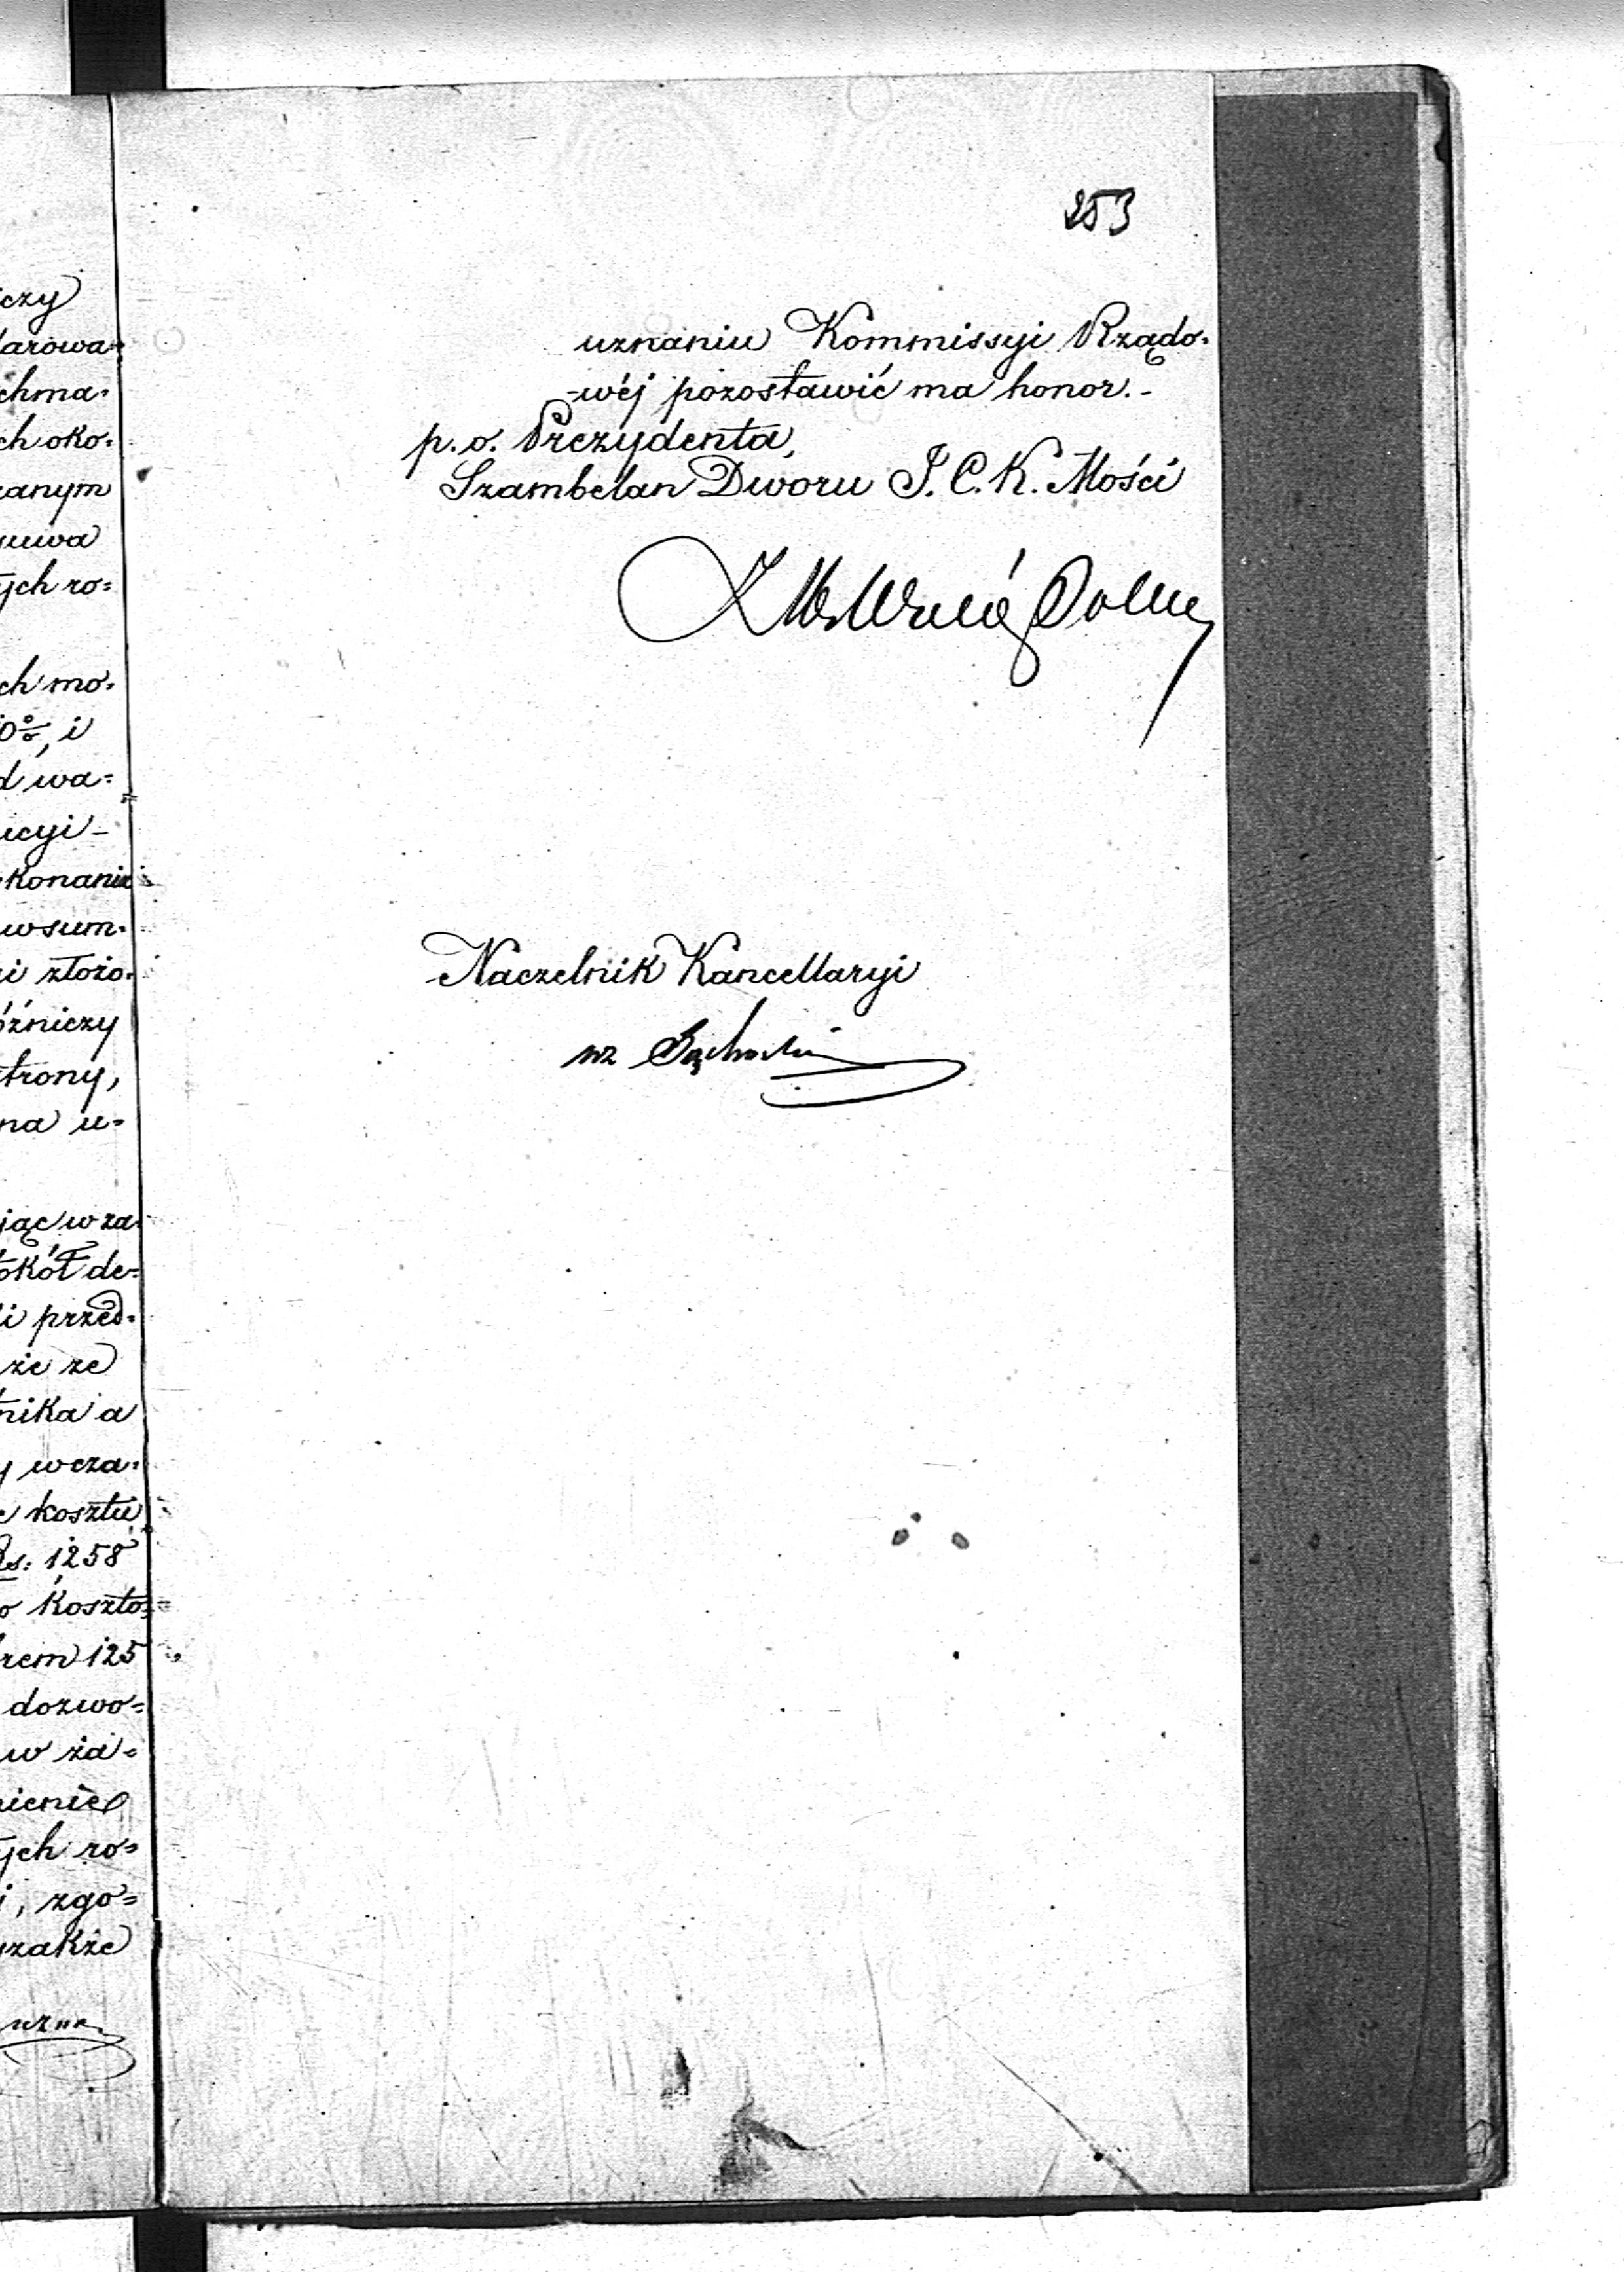 czy
darowa=
chma=
ch oko=
zanym
suwa
ych ro=
ch mo=
0%, i
d wa=
ucyi -
konanie
w sum=
i złożo=
óźniczy
strony,
na u=
jąc w za=
okół de=
i przed=
że ze
nika a
y wcza=
kosztu
Rs: 1258
o koszto=
rem 125
dozwo=
w za=
nienie
ych ro=
i, zgo=
zakże
uzna
253
uznaniu Kommissyi Rządo=
=wéj pozostawić ma honor. -
p. o. Prezydenta,
Szambelan Dworu J. C. K. Mości
Naczelnik Kancellaryi
wz